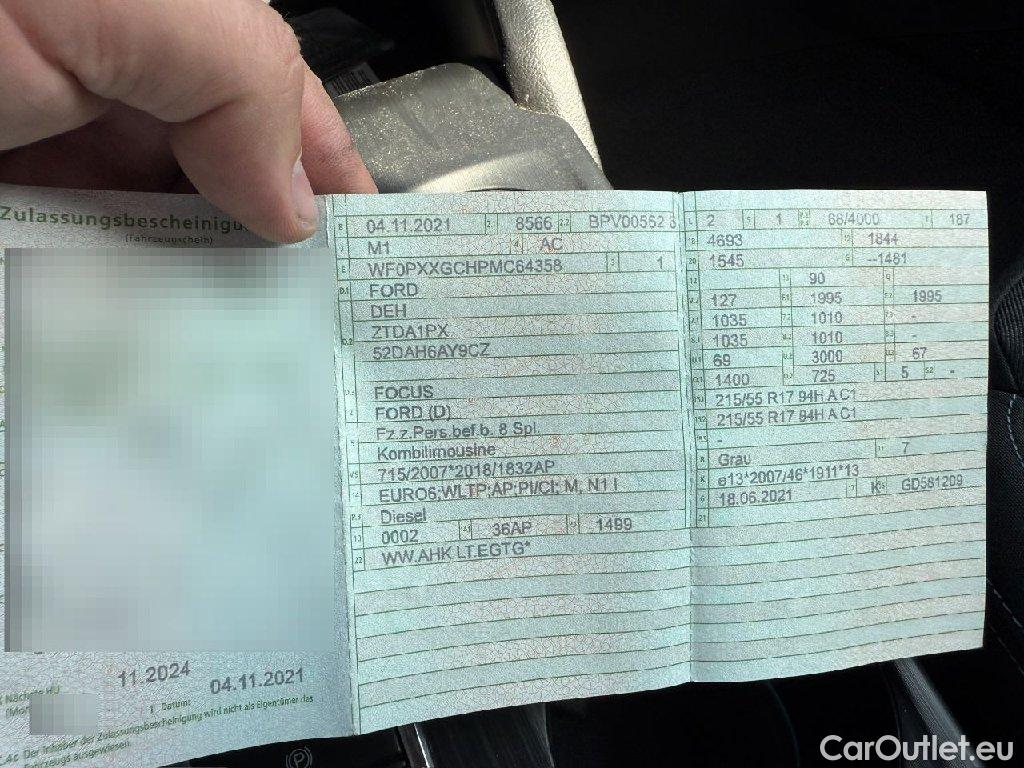 Zulassungsbescheinigu
(Fahrzeugschein)
11.2024
04.11.2021
Nächste HU
Datum:
Der Inhaber der Zulassungsbescheinigung wird nicht als Eigentümer des
Fahrzeugs ausgewiesen.
B 04.11.2021 2 8566 2.2 BPV00562 3
M1 4 AC
E WF0PXXGCHPMC64358 3 1
D.1 FORD
DEH
ZTDA1PX
D.2 52DAH6AY9CZ
FOCUS
FORD (D)
Fz.z.Pers.bef.b. 8 Spl.
Kombilimousine
715/2007*2018/1832AP
14 EURO6;WLTP;AP;PI/CI; M, N1 I
P.3 Diesel
10 0002 36AP 1499
22 WW.AHK LT.EGTG*
L 2 9 1 68/4000 T 187
18 4693 19 1844
20 1545 G --1461
12 13 90 Q
127 F.1 1995 F.2 1995
1035 1010 -
1035 1010 -
U.1 69 U.2 3000 U.3 67
O.1 1400 O.2 725 S.1 5 S.2 -
215/55 R17 94H A C1
215/55 R17 94H A C1
-
R Grau 11 7
K e13*2007/46*1911*13
6 18.06.2021 17 K 16 GD581209
21
CarOutlet.eu